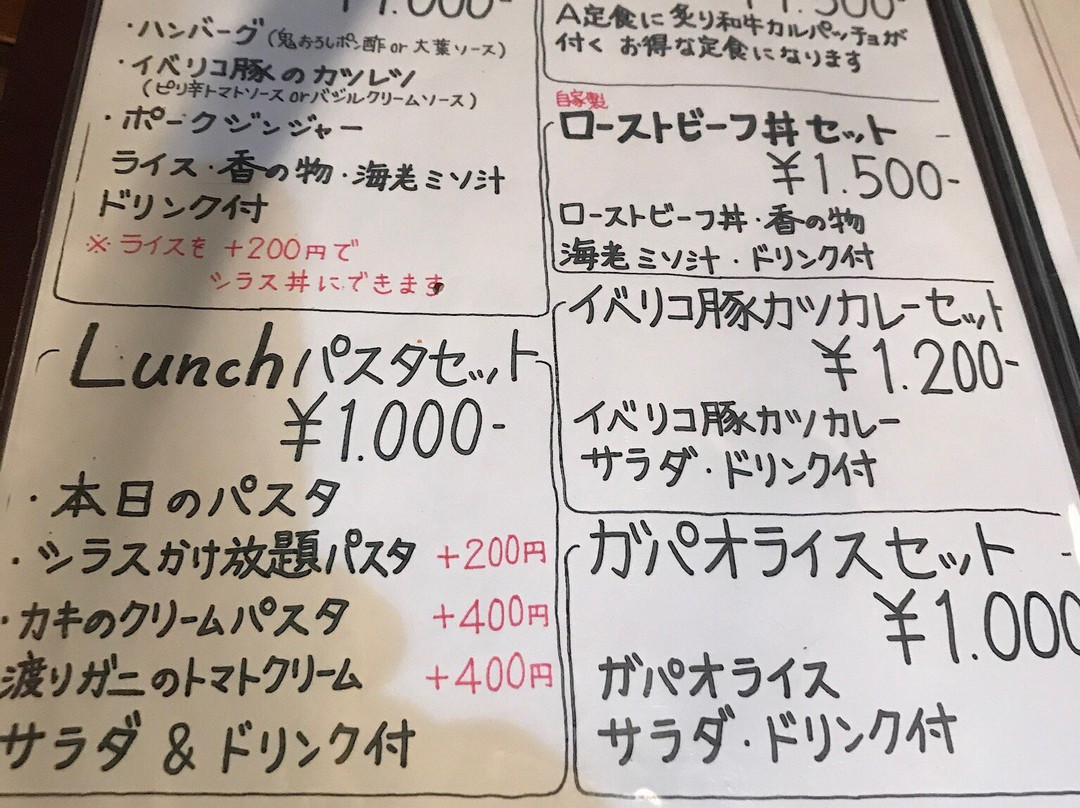 ¥1.000-
・ハンバーグ(鬼おろしポン酢 or 大葉ソース)
・イベリコ豚のカツレツ
(ピリ辛トマトソース or バジルクリームソース)
・ポークジンジャー
ライス・香の物・海老ミソ汁
ドリンク付
※ライスを +200円で
シラス丼にできます
Lunchパスタセット
¥1.000-
・本日のパスタ
・シラスかけ放題パスタ +200円
・カキのクリームパスタ +400円
渡りガニのトマトクリーム +400円
サラダ & ドリンク付
A定食に 炙り和牛カルパッチョが
付く お得な定食になります
自家製
ローストビーフ丼セット
¥1.500-
ローストビーフ丼・香の物
海老ミソ汁・ドリンク付
イベリコ豚カツカレーセット
¥1.200-
イベリコ豚カツカレー
サラダ・ドリンク付
ガパオライスセット
¥1.000
ガパオライス
サラダ・ドリンク付